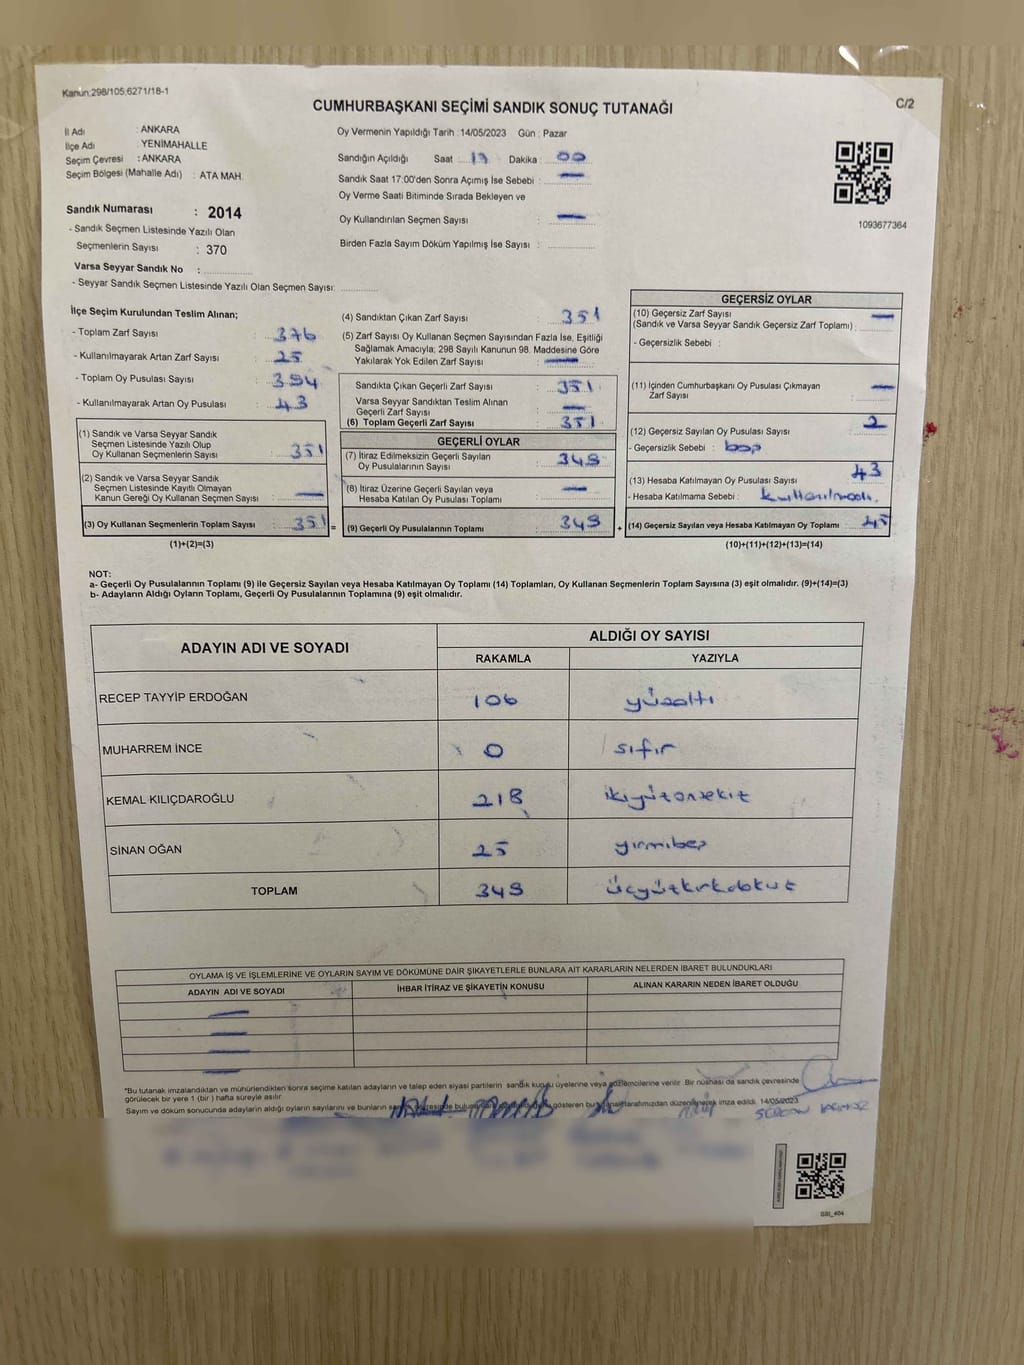 Kanun:298/105;6271/18-1
C/2
CUMHURBAŞKANI SEÇİMİ SANDIK SONUÇ TUTANAĞI
İl Adı : ANKARA
İlçe Adı : YENİMAHALLE
Seçim Çevresi : ANKARA
Seçim Bölgesi (Mahalle Adı) : ATA MAH.
Sandık Numarası : 2014
- Sandık Seçmen Listesinde Yazılı Olan
Seçmenlerin Sayısı : 370
Varsa Seyyar Sandık No :
- Seyyar Sandık Seçmen Listesinde Yazılı Olan Seçmen Sayısı:
Oy Vermenin Yapıldığı Tarih :14/05/2023 Gün : Pazar
Sandığın Açıldığı Saat : 17 Dakika : 00
Sandık Saat 17:00'den Sonra Açımış İse Sebebi : —
Oy Verme Saati Bitiminde Sırada Bekleyen ve
Oy Kullandırılan Seçmen Sayısı : —
Birden Fazla Sayım Döküm Yapılmış İse Sayısı :
1093677364
İlçe Seçim Kurulundan Teslim Alınan;
- Toplam Zarf Sayısı : 376
- Kullanılmayarak Artan Zarf Sayısı : 25
- Toplam Oy Pusulası Sayısı : 394
- Kullanılmayarak Artan Oy Pusulası : 43
(1) Sandık ve Varsa Seyyar Sandık
Seçmen Listesinde Yazılı Olup
Oy Kullanan Seçmenlerin Sayısı : 351
(2) Sandık ve Varsa Seyyar Sandık
Seçmen Listesinde Kayıtlı Olmayan
Kanun Gereği Oy Kullanan Seçmen Sayısı : —
(3) Oy Kullanan Seçmenlerin Toplam Sayısı : 351
(1)+(2)=(3)
(4) Sandıktan Çıkan Zarf Sayısı : 351
(5) Zarf Sayısı Oy Kullanan Seçmen Sayısından Fazla İse, Eşitliği
Sağlamak Amacıyla; 298 Sayılı Kanunun 98. Maddesine Göre
Yakılarak Yok Edilen Zarf Sayısı : —
Sandıkta Çıkan Geçerli Zarf Sayısı : 351
Varsa Seyyar Sandıktan Teslim Alınan
Geçerli Zarf Sayısı : —
(6) Toplam Geçerli Zarf Sayısı : 351
GEÇERLİ OYLAR
(7) İtiraz Edilmeksizin Geçerli Sayılan
Oy Pusulalarının Sayısı : 349
(8) İtiraz Üzerine Geçerli Sayılan veya
Hesaba Katılan Oy Pusulası Toplamı : —
= (9) Geçerli Oy Pusulalarının Toplamı : 349
GEÇERSİZ OYLAR
(10) Geçersiz Zarf Sayısı —
(Sandık ve Varsa Seyyar Sandık Geçersiz Zarf Toplamı) :
- Geçersizlik Sebebi :
(11) İçinden Cumhurbaşkanı Oy Pusulası Çıkmayan
Zarf Sayısı : —
(12) Geçersiz Sayılan Oy Pusulası Sayısı : 2
- Geçersizlik Sebebi : boş
(13) Hesaba Katılmayan Oy Pusulası Sayısı : 43
- Hesaba Katılmama Sebebi : kullanılmadı.
+ (14) Geçersiz Sayılan veya Hesaba Katılmayan Oy Toplamı : 45
(10)+(11)+(12)+(13)=(14)
NOT:
a- Geçerli Oy Pusulalarının Toplamı (9) ile Geçersiz Sayılan veya Hesaba Katılmayan Oy Toplamı (14) Toplamları, Oy Kullanan Seçmenlerin Toplam Sayısına (3) eşit olmalıdır. (9)+(14)=(3)
b- Adayların Aldığı Oyların Toplamı, Geçerli Oy Pusulalarının Toplamına (9) eşit olmalıdır.
ADAYIN ADI VE SOYADI ALDIĞI OY SAYISI
RAKAMLA YAZIYLA
RECEP TAYYİP ERDOĞAN 106 yüzaltı
MUHARREM İNCE 0 sıfır
KEMAL KILIÇDAROĞLU 218 ikiyüzonsekiz
SİNAN OĞAN 25 yirmibeş
TOPLAM 349 üçyüzkırkdokuz
OYLAMA İŞ VE İŞLEMLERİNE VE OYLARIN SAYIM VE DÖKÜMÜNE DAİR ŞİKAYETLERLE BUNLARA AİT KARARLARIN NELERDEN İBARET BULUNDUKLARI
ADAYIN ADI VE SOYADI İHBAR İTİRAZ VE ŞİKAYETİN KONUSU ALINAN KARARIN NEDEN İBARET OLDUĞU
*Bu tutanak imzalandıktan ve mühürlendikten sonra seçime katılan adayların ve talep eden siyasi partilerin sandık kurulu üyelerine veya gözlemcilerine verilir. Bir nüshası da sandık çevresinde
görülecek bir yere 1 (bir) hafta süreyle asılır.
Sayım ve döküm sonucunda adayların aldığı oyların sayılarını ve bunların gösteren bu tarafımızdan düzenlenerek imza edildi. 14/05/2023